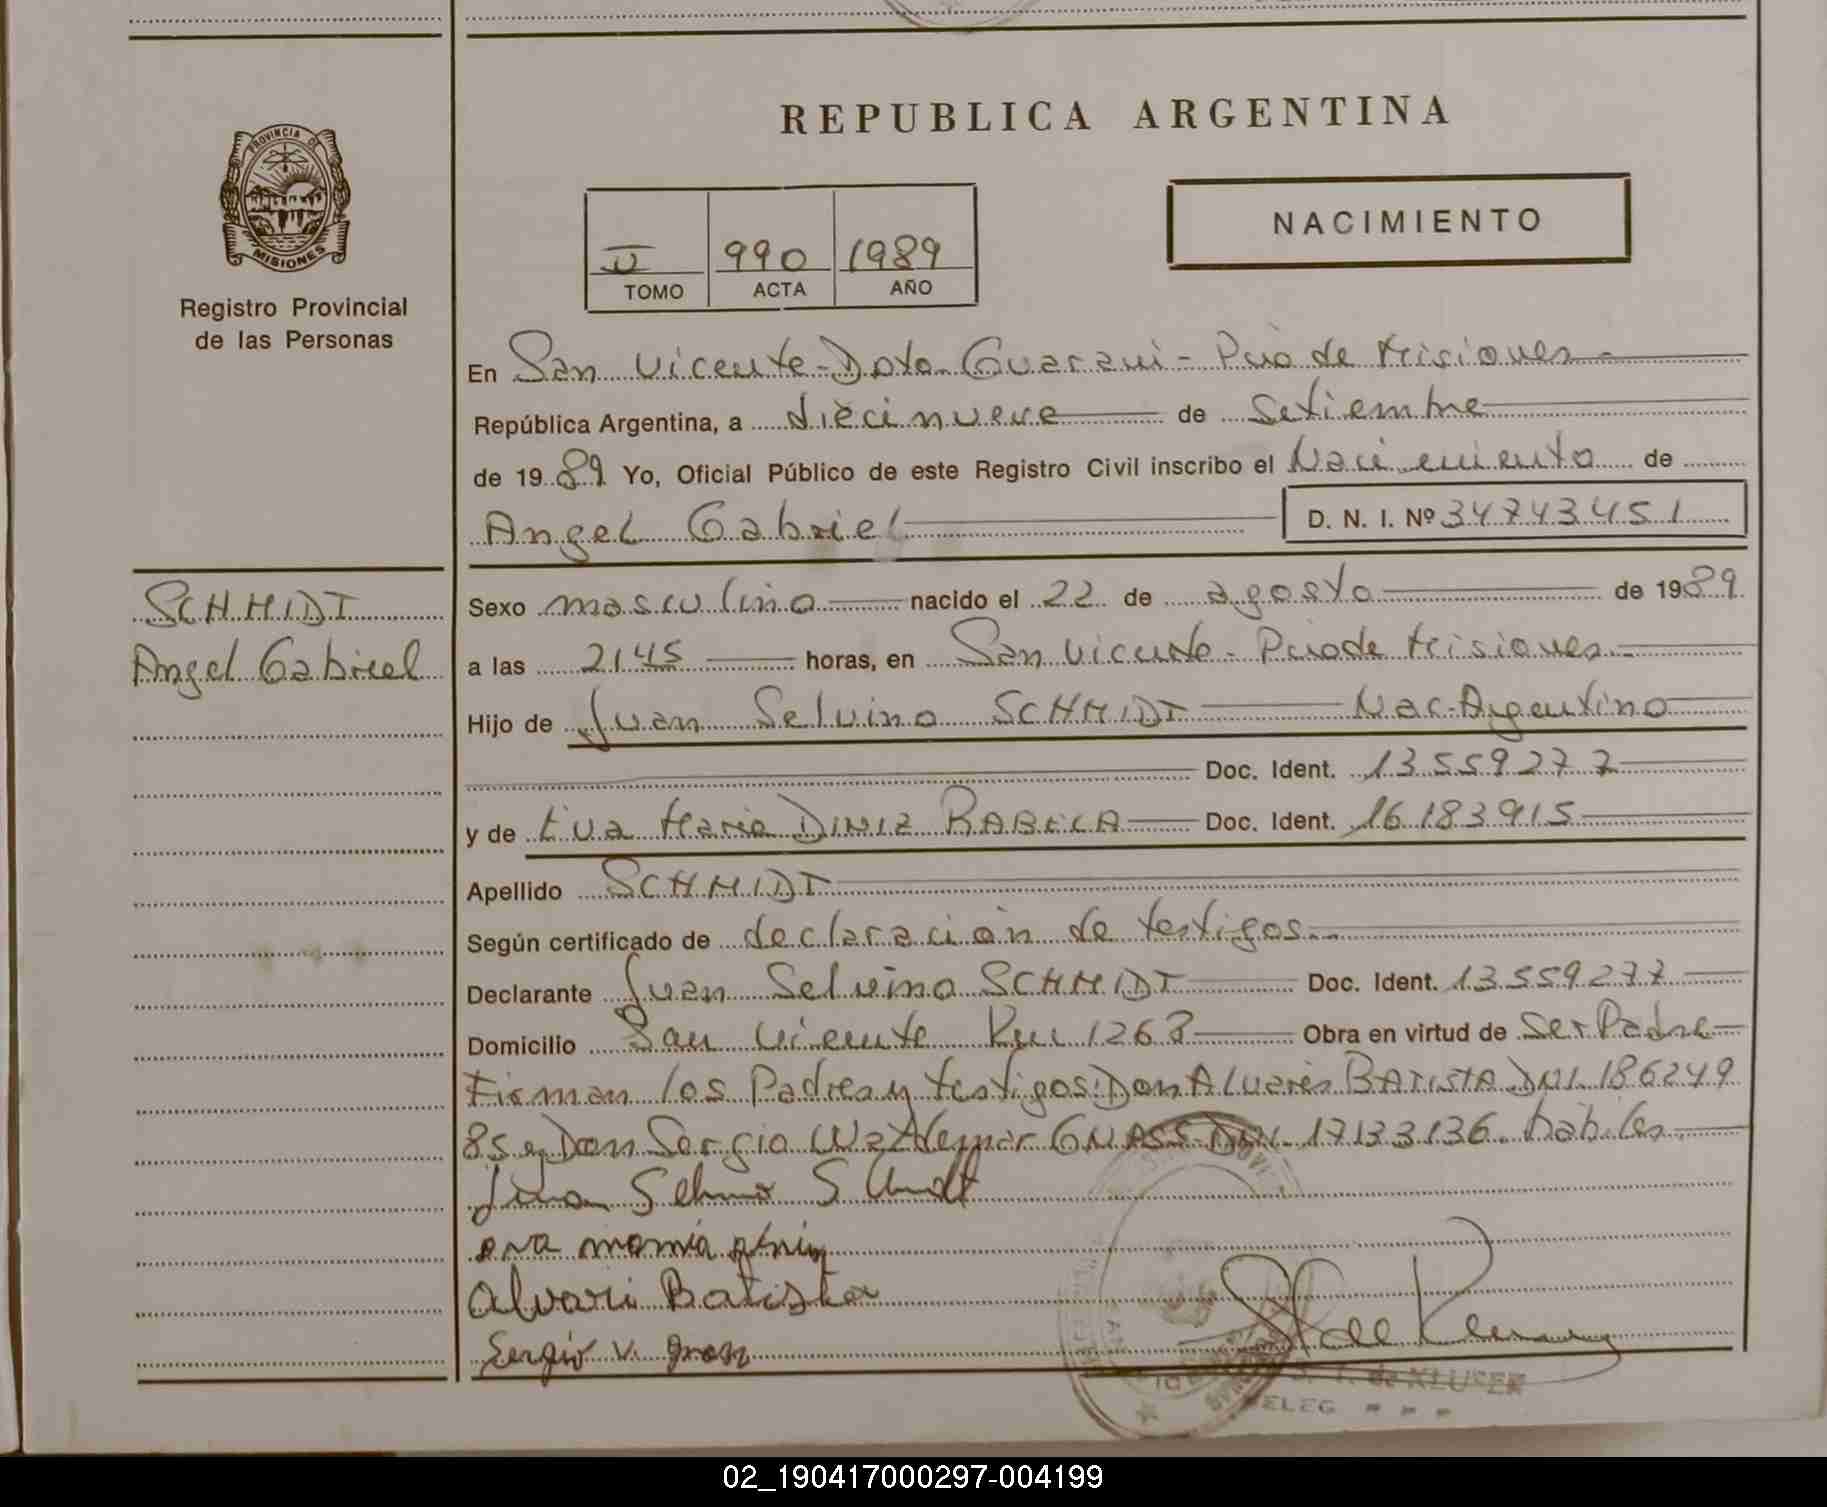 REPUBLICA ARGENTINA
PROVINCIA DE
MISIONES
Registro Provincial
de las Personas
II 990 1989
TOMO ACTA AÑO
NACIMIENTO
En San Vicente - Dpto. Guarani - Pcia de Misiones -
República Argentina, a diecinueve de Setiembre
de 1989 Yo, Oficial Público de este Registro Civil inscribo el Nacimiento de
Angel Gabriel D. N. I. Nº 34743451
SCHMIDT
Angel Gabriel
Sexo masculino nacido el 22 de agosto de 1989
a las 2145 horas, en San Vicente - Pcia de Misiones -
Hijo de Juan Selvino SCHMIDT Nac. Argentino
Doc. Ident. 13559277
y de Eva Maria DINIZ RABELA Doc. Ident. 16183915
Apellido SCHMIDT
Según certificado de declaración de testigos.
Declarante Juan Selvino SCHMIDT Doc. Ident. 13559277
Domicilio San Vicente Km 1268 Obra en virtud de Ser Padre
Firman los Padres y testigos: Don Alvares BATISTA DNI 186249
85 y Don Sergio Waldemar GNASS DNI 17133136 habiles
Juan Selvino Schmidt
eva maria diniz
Alvari Batista
Sergio V.
S. T. de KLUSER
DELEG
02_190417000297-004199